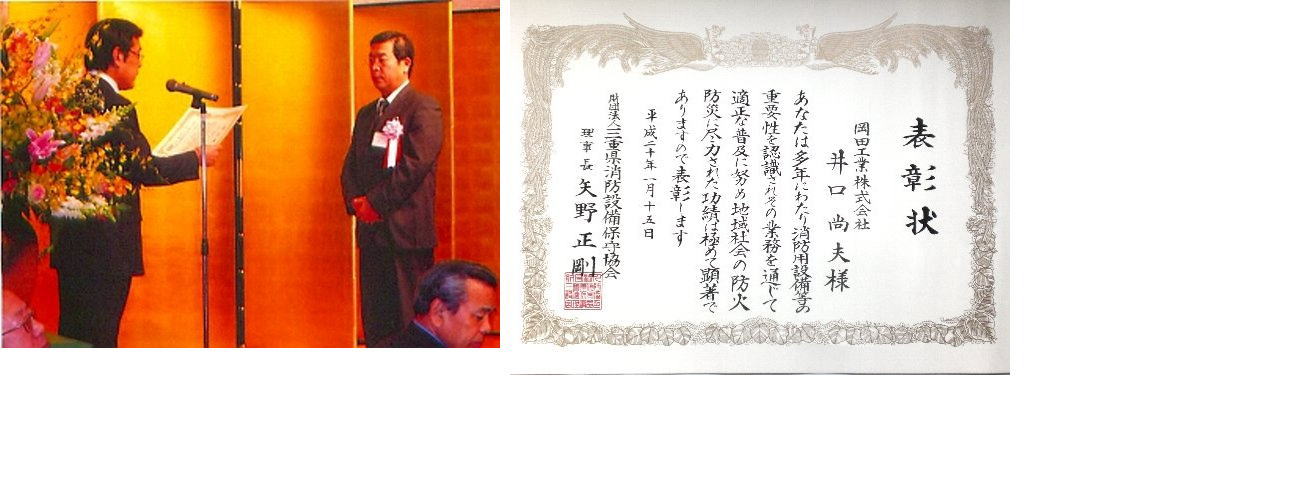 表彰状
岡田工業株式会社
井口尚夫様
あなたは多年にわたり消防用設備等の
重要性を認識されその業務を通じて
適正な普及に努め地域社会の防火
防災に尽力された功績は極めて顕著で
ありますので表彰します
平成二十年一月十五日
財団法人三重県消防設備保守協会
理事長矢野正剛